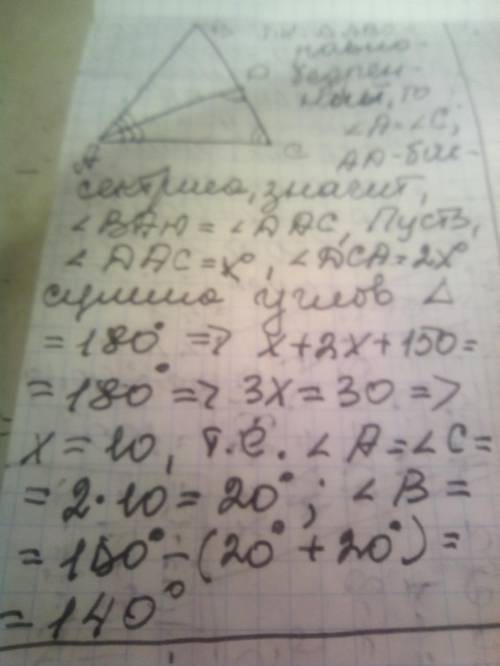 B Т.к. △ABC
равно-
D бедрен-
ный, то
∠A=∠C;
A C AD-бис-
сектриса, значит,
∠BAD = ∠DAC, Пусть,
∠DAC = x°, ∠DCA = 2x°
сумма углов △
= 180° => x+2x+150=
= 180° => 3x = 30 =>
x = 10, т.е. ∠A = ∠C =
= 2·10 = 20°; ∠B =
= 180° - (20° + 20°) =
= 140°